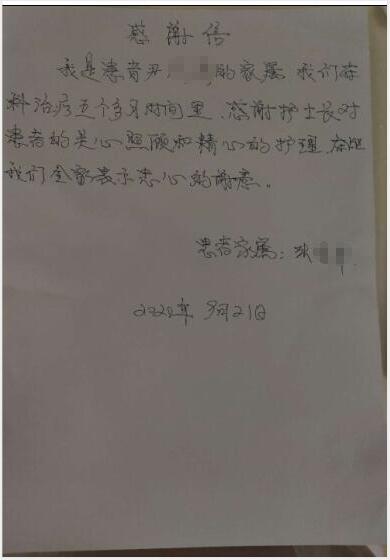 感谢信
我是患者尹 的家属,我们在
科治疗五个多月时间里,感谢护士长对
患者的关心照顾和精心的护理,在此
我们全家表示忠心的谢意。
患者家属:
2020年9月21日